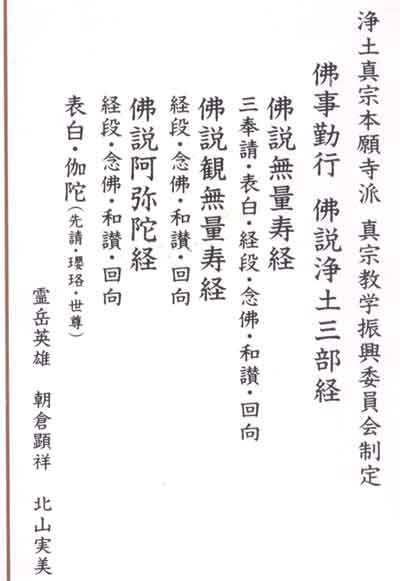 浄土真宗本願寺派 真宗教学振興委員会制定
佛事勤行 佛説浄土三部経
佛説無量寿経
三奉請・表白・経段・念佛・和讃・回向
佛説観無量寿経
経段・念佛・和讃・回向
佛説阿弥陀経
経段・念佛・和讃・回向
表白・伽陀(先請・瓔珞・世尊)
霊岳英雄 朝倉顕祥 北山実美